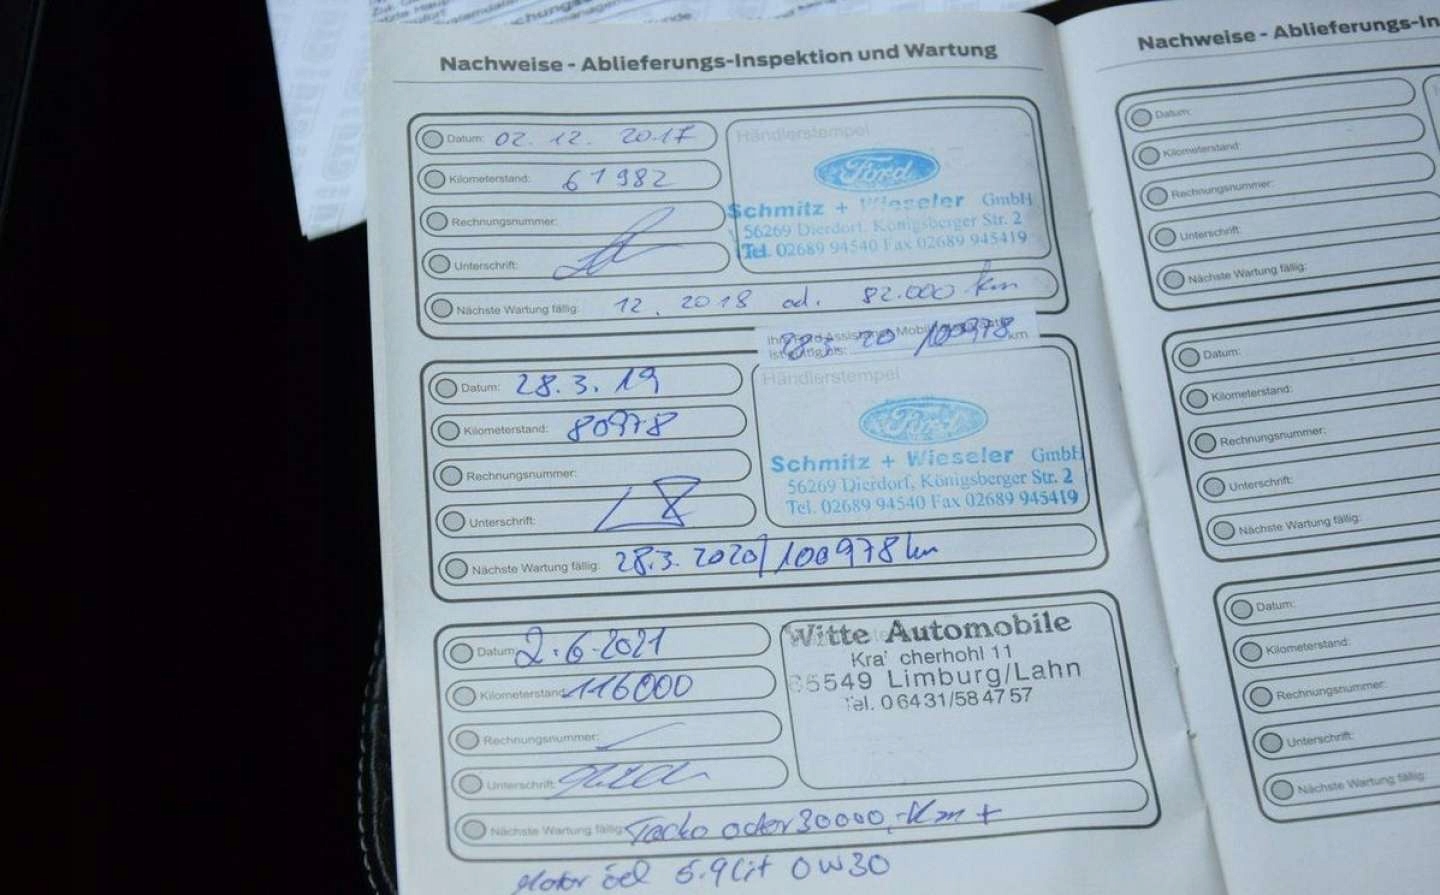 Nachweise - Ablieferungs-Inspektion und Wartung
Datum: 02. 12. 2017
Kilometerstand: 61982
Rechnungsnummer:
Unterschrift:
Händlerstempel
Ford
Schmitz + Wieseler GmbH
56269 Dierdorf, Königsberger Str. 2
Tel. 02689 94540 Fax 02689 945419
Nächste Wartung fällig: 12. 2018 od. 82.000 km
20 100978 km
Datum: 28.3.19
Kilometerstand: 80978
Rechnungsnummer:
Unterschrift:
Händlerstempel
Ford
Schmitz + Wieseler GmbH
56269 Dierdorf, Königsberger Str. 2
Tel. 02689 94540 Fax 02689 945419
Nächste Wartung fällig: 28.3.2020/100978 km
Datum: 2.6.2021
Kilometerstand: 116000
Rechnungsnummer:
Unterschrift:
Witte Automobile
11
65549 Limburg/Lahn
Tel. 06431/584757
Nächste Wartung fällig: oder 30000,- Km +
Motor öel 5.9 lit 0W30
Nachweise - Ablieferungs-In
Datum:
Kilometerstand:
Rechnungsnummer:
Unterschrift:
Nächste Wartung fällig:
Datum:
Kilometerstand:
Rechnungsnummer:
Unterschrift:
Nächste Wartung fällig:
Datum:
Kilometerstand:
Rechnungsnummer:
Unterschrift:
Nächste Wartung fällig: